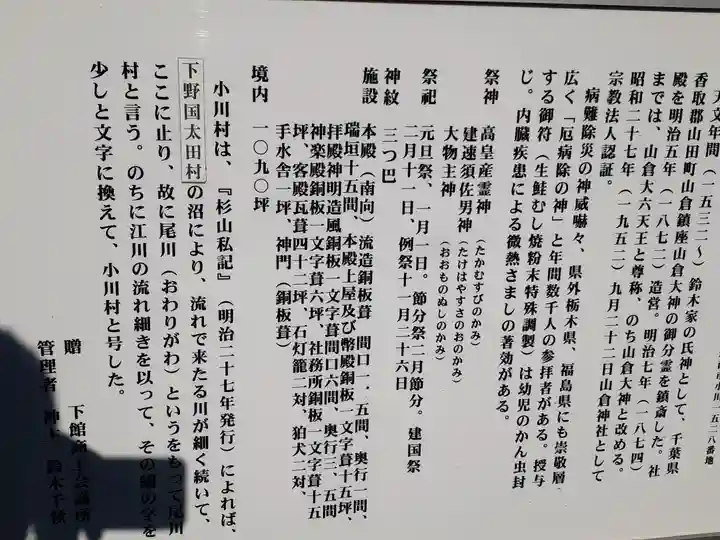 小川一五二八番地
天文年間（一五三二～）鈴木家の氏神として、千葉県
香取郡山田町山倉鎮座山倉大神の御分霊を鎮斎した。社
殿を明治五年（一八七二）造営。明治七年（一八七四）
までは、山倉大六天王と尊称、のち山倉大神と改める。
昭和二十七年（一九五二）九月二十二日山倉神社として
宗教法人認証。
病難除災の神威嚇々、県外栃木県、福島県にも崇敬層
広く「厄病除の神」と年間数千人の参拝者がある。授与
する御符（生鮭むし焼粉末特殊調製）は幼児のかん虫封
じ。内臓疾患による微熱さましの著効がある。
祭神　高皇産霊神（たかむすびのかみ）
建速須佐男神（たけはやすさのおのかみ）
大物主神（おおものぬしのかみ）
祭祀　元旦祭、一月一日。節分祭二月節分。建国祭
二月十一日、例祭十一月二十六日
神紋　三つ巴
施設　本殿（南向）流造銅板葺　間口一．五間、奥行一間、
瑞垣十五間、本殿上屋及び幣殿銅板一文字葺十五坪、
拝殿神明造風銅板一文字葺間口六間、奥行三、五間
神楽殿銅板一文字葺六坪、社務所銅板一文字葺十五
坪、客殿瓦葺四十二坪、石灯籠二対、狛犬二対、
手水舎一坪、神門（銅板葺）
境内　一〇九〇坪
小川村は、『杉山私記』（明治二十七年発行）によれば、
下野国太田村の沼により、流れで来たる川が細く続いて、
ここに止り、故に尾川（おわりがわ）というをもって尾川
村と言う。のちに江川の流れ細きを以って、その細の字を
少しと文字に換えて、小川村と号した。
贈　下館商工会議所
管理者　神主　鈴木千秋